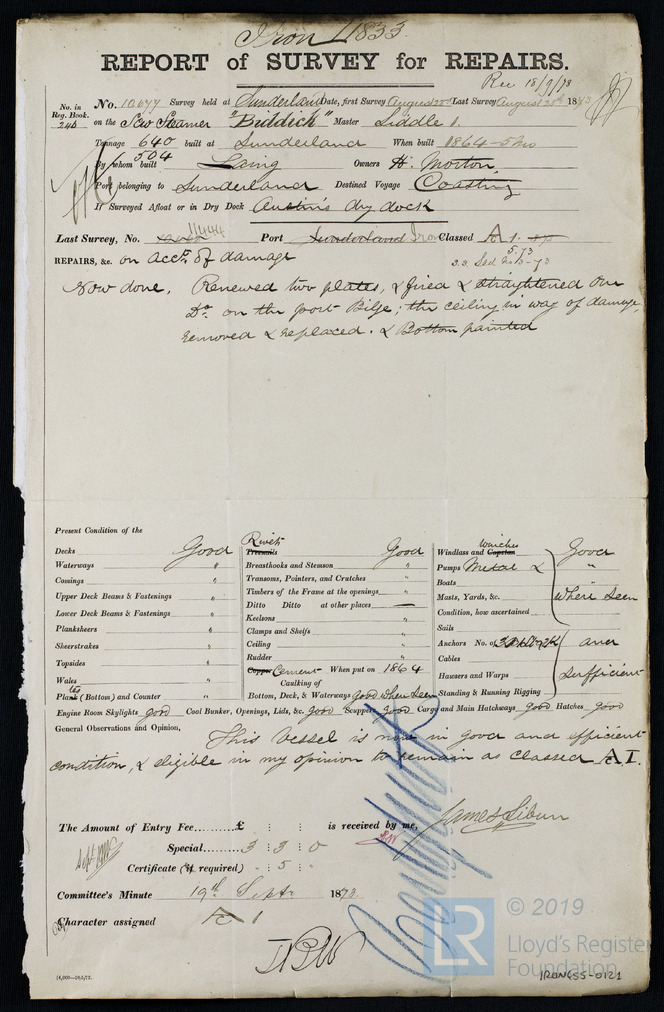 Iron 11833
REPORT of SURVEY for REPAIRS.
Rec 18/9/73
No. in Reg. Book. 240
No. 10077 Survey held at Sunderland Date, first Survey August 22nd Last Survey August 25th 1873
on the Screw Steamer "Biddick" Master Liddle
Tonnage 640 504 built at Sunderland When built 1864-5 mo
By whom built Laing Owners H. Morton
Port belonging to Sunderland Destined Voyage Coasting
If Surveyed Afloat or in Dry Dock Austin's dry dock
Last Survey, No. 11444 Port Sunderland Iron Classed A 1.
REPAIRS, &c. on acct. of damage
Now done, Renewed two plates, & faired & straightened one
Do. on the port Bilge; the ceiling in way of damage,
removed & replaced. & Bottom painted
Present Condition of the
Decks Good
Waterways "
Comings "
Upper Deck Beams & Fastenings "
Lower Deck Beams & Fastenings "
Planksheers "
Sheerstrakes "
Topsides "
Wales "
Plates (Bottom) and Counter "
Rivets Treenails Good
Breasthooks and Stemson "
Transoms, Pointers, and Crutches "
Timbers of the Frame at the openings "
Ditto Ditto at other places —
Keelsons "
Clamps and Shelfs "
Ceiling "
Rudder "
Copper Cement When put on 1864
Caulking of
Bottom, Deck, & Waterways good when seen
Windlass and Capstan Winches Good
Pumps Metal & "
Boats
Masts, Yards, &c. where seen
Condition, how ascertained
Sails
Anchors No. of and
Cables
Hawsers and Warps sufficient
Standing & Running Rigging
Engine Room Skylights good Coal Bunker, Openings, Lids, &c. good Scuppers good Cargo and Main Hatchways good Hatches good
General Observations and Opinion,
This Vessel is now in good and efficient
condition, & eligible in my opinion to remain as classed A 1.
The Amount of Entry Fee £ : : is received by me,
Special 3 3 0
Certificate (if required) . 5 :
Committee's Minute 19th Septr 1873
Character assigned A 1
© 2019
LR
Lloyd's Register
Foundation
IRON655-0121